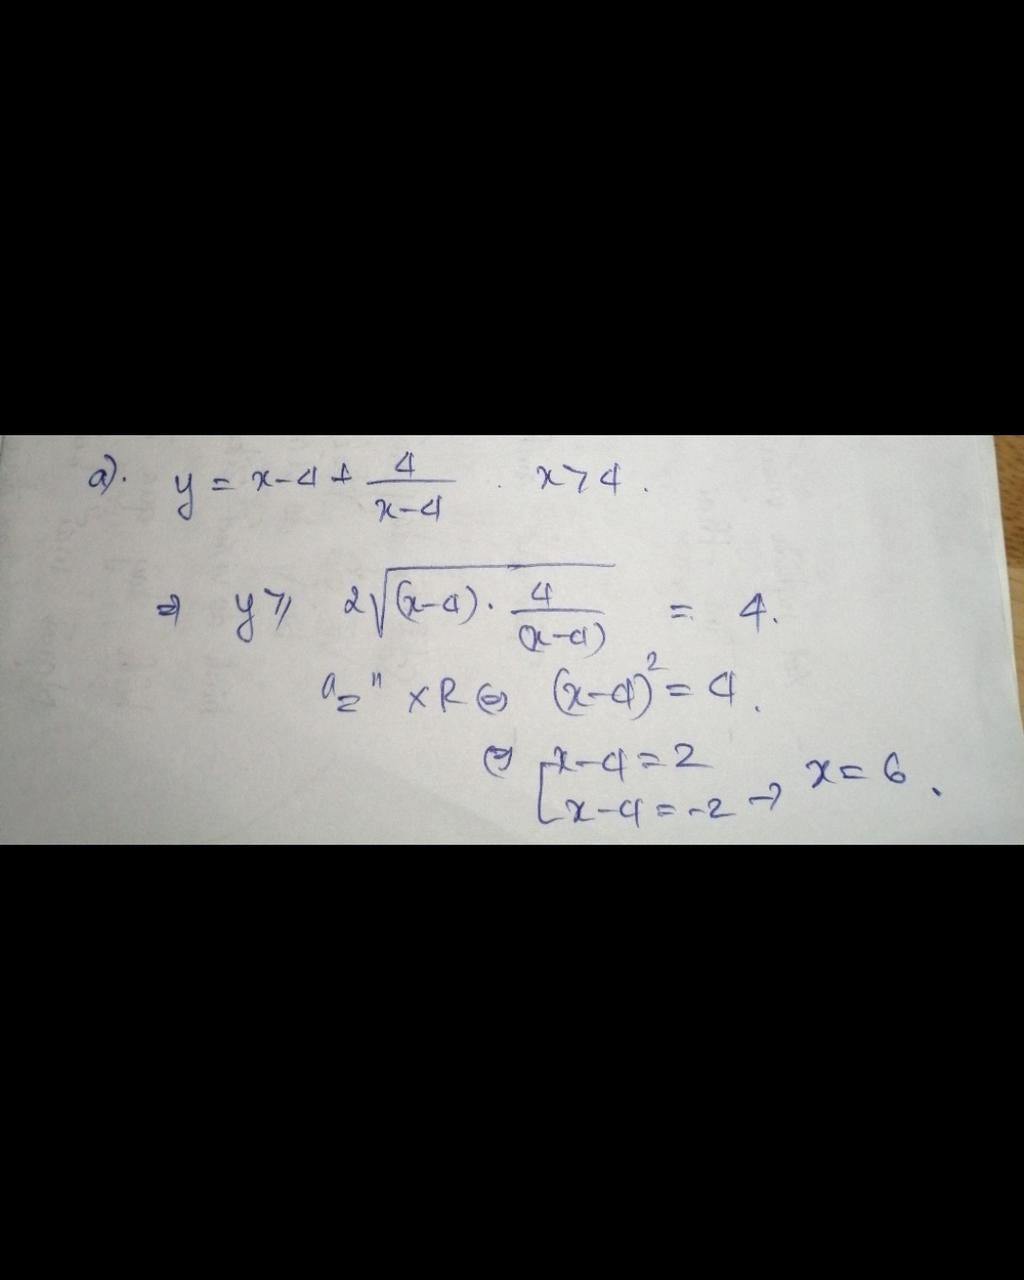 a). y = x-4 + 4/(x-4) . x>4.
⇒ y ≥ 2√((x-4) . 4/(x-4)) = 4.
"=" xR ⇔ (x-4)² = 4.
⇔ [ x-4=2
x-4=-2 → x=6.